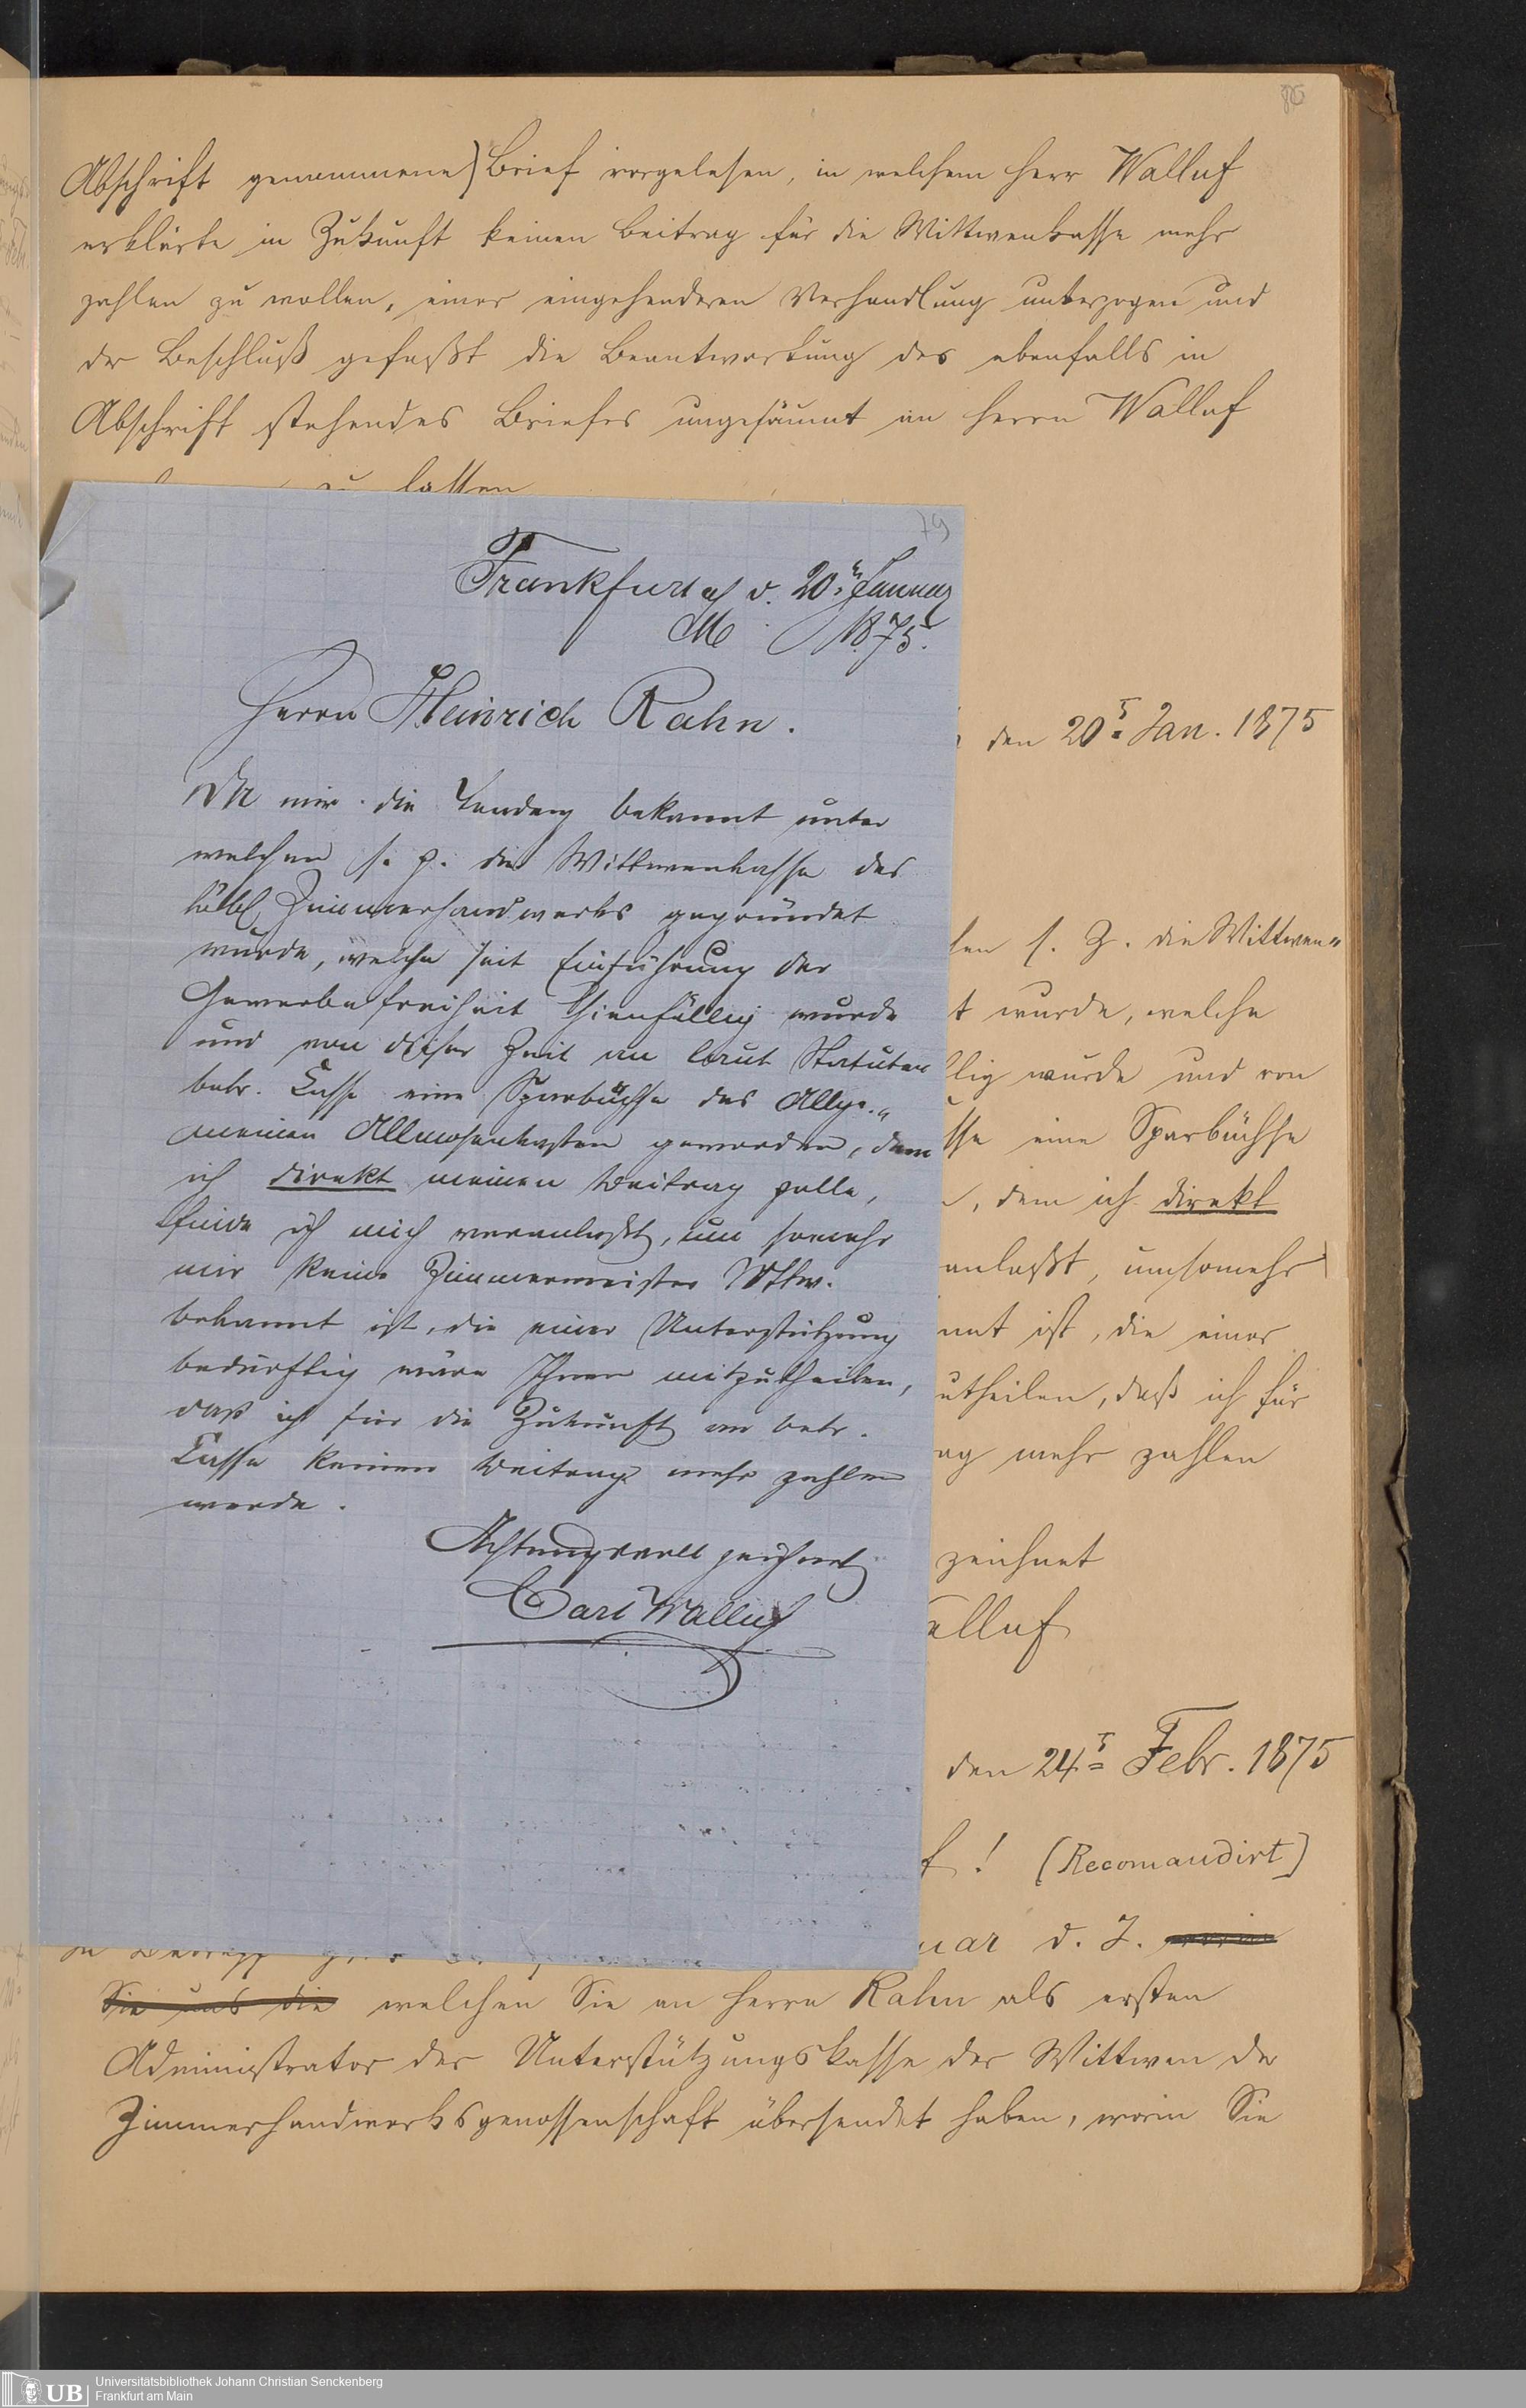 Abschrift genommene) Brief vorgelesen, in welchem Herr Walluf
erklärte in Zukunft keinen Beitrag für die Wittwenkasse mehr
zahlen zu wollen, einer eingehenderen Verhandlung unterzogen und
der Beschluß gefaßt die Beantwortung des ebenfalls in
Abschrift stehendes Briefes ungesäumt an Herrn Walluf
zu lassen
79
Frankfurt a/ d. 20n Januar
M 1875.
Herrn Heinrich Rahn.
Da mir die Tendenz bekannt unter
welchen s. Z. die Wittwenkasse des
löbl. Zimmerhandwerks gegründet
wurde, welche seit Einführung der
Gewerbefreiheit hienfällig wurde
und von dieser Zeit an laut Statuten
betr. Casse eine Sparbüchse des Allge-"
meinen Allmosenkasten geworden, dem
ich direkt meinen Beitrag zolle,
finde ich mich veranlaßt, um somehr
mir keine Zimmermeister Wttw.
bekannt ist, die einer Unterstützung
bedürftig wäre Ihnen mitzutheilen,
daß ich für die Zukunft an betr.
Casse keinen Beitrag mehr zahlen
werde.
Achtungsvoll zeichnet
Carl Walluf
den 20t Jan. 1875
len s. Z. die Wittwen"
t wurde, welche
llig wurde und von
sse eine Sparbüchse
, dem ich direkt
anlaßt, umsomehr
nnt ist, die einer
utheilen, daß ich für
ag mehr zahlen
zeichnet
alluf
den 24t Febr. 1875
f! (Recomandirt)
uar d. J.
Sie uns die welchen Sie an Herrn Rahn als ersten
Administrator der Unterstützungskasse der Wittwen der
Zimmerhandwerksgenossenschaft übersendet haben, worin Sie
UB
Universitätsbibliothek Johann Christian Senckenberg
Frankfurt am Main